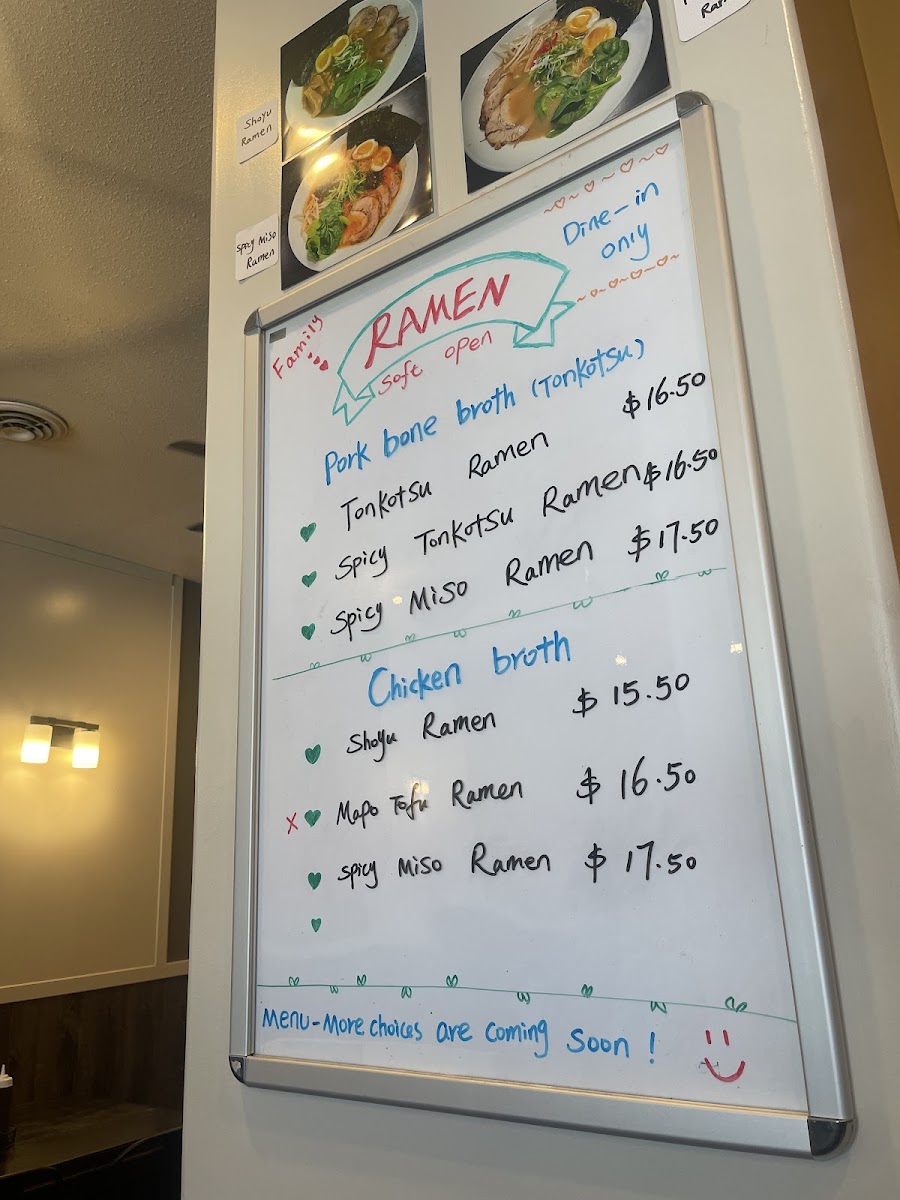 Shoyu
Ramen
Spicy Miso
Ramen
Dine-in
only
Family
RAMEN
Soft open
Pork bone broth (Tonkotsu)
Tonkotsu Ramen $16.50
Spicy Tonkotsu Ramen $16.50
Spicy Miso Ramen $17.50
Chicken broth
Shoyu Ramen $15.50
X Mapo Tofu Ramen $16.50
Spicy Miso Ramen $17.50
Menu-More choices are coming Soon!